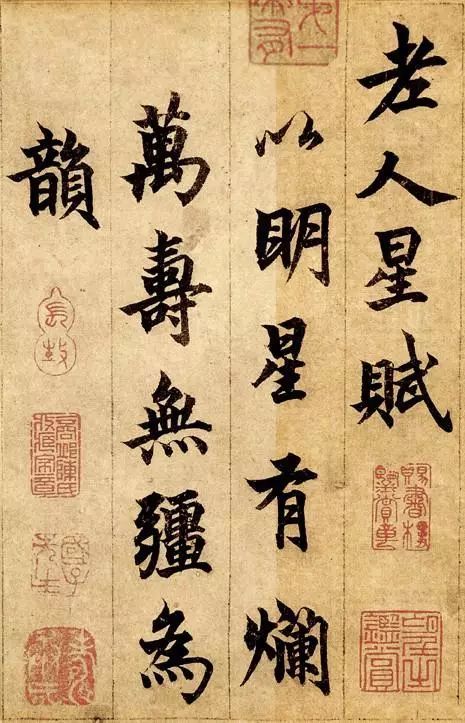 老人星賦
以明星有爛
萬壽無疆為
韻
賜書樓